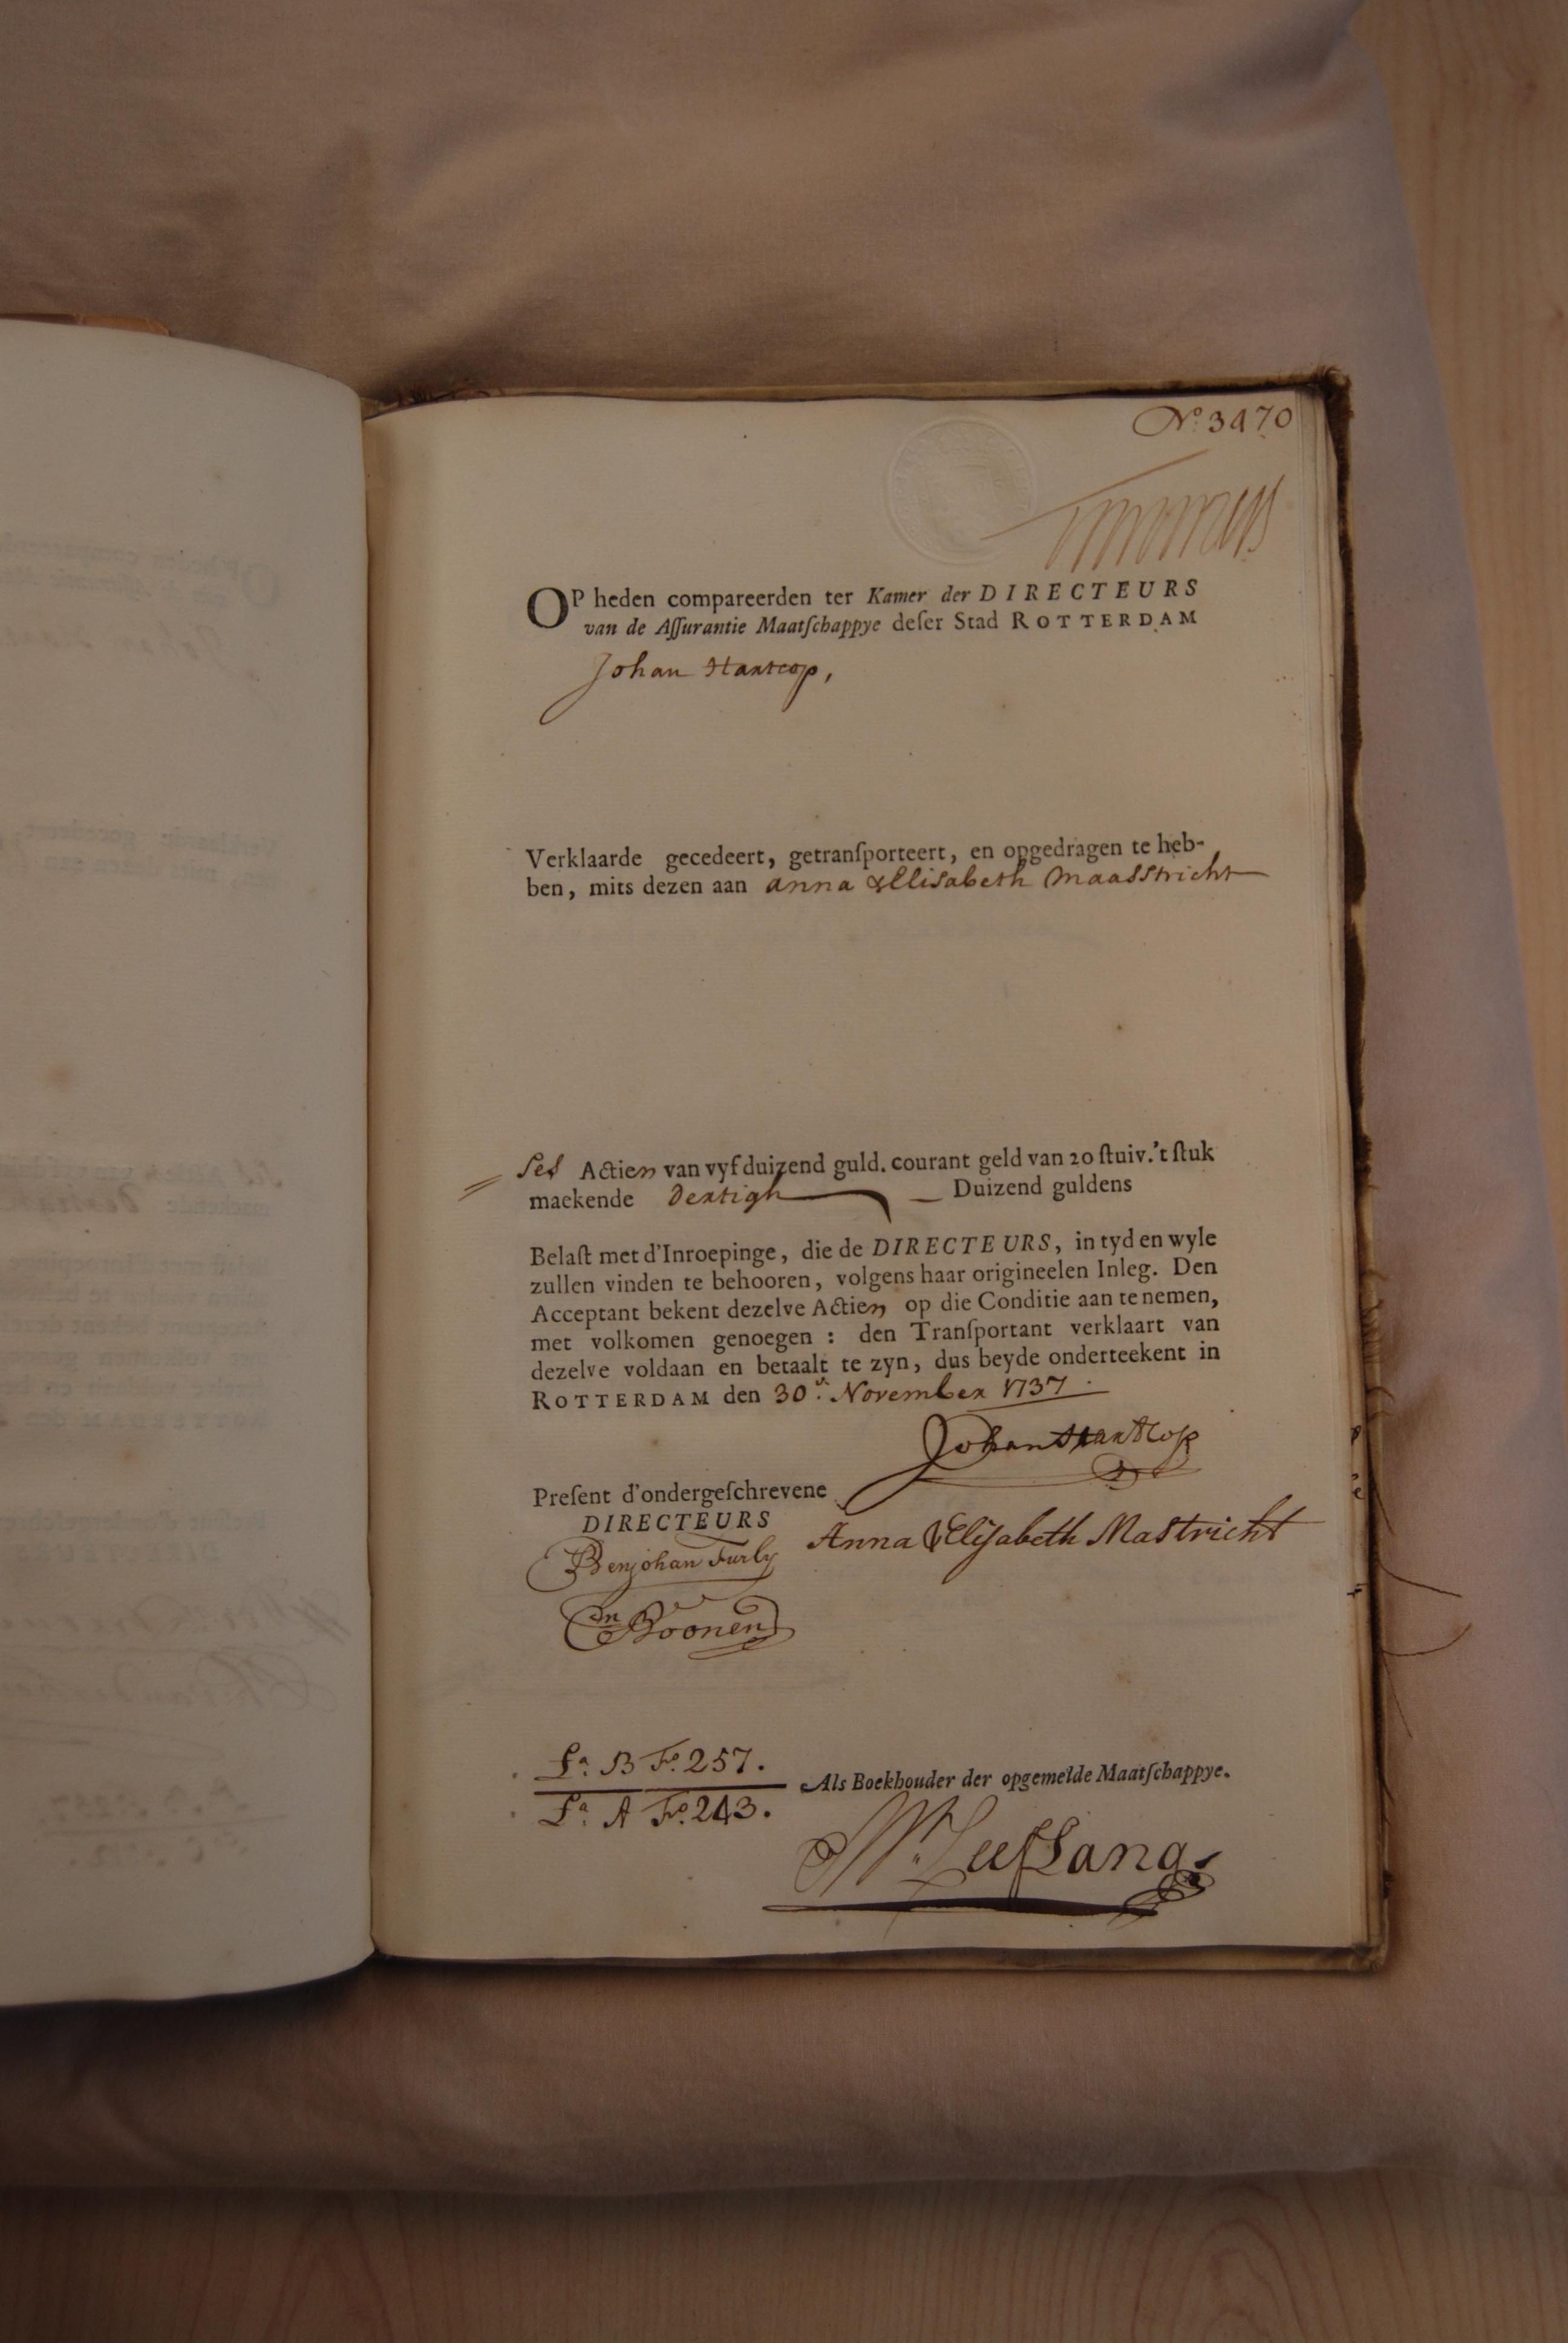 No. 3470
OP heden compareerden ter Kamer der DIRECTEURS
van de Assurantie Maatschappye deser Stad ROTTERDAM
Johan Hartcop,
Verklaarde gecedeert, getransporteert, en opgedragen te heb-
ben, mits dezen aan anna Elisabeth Maasstricht
Ses Actien van vyf duizend guld. courant geld van 20 stuiv. 't stuk
maekende dertigh Duizend guldens
Belast met d'Inroepinge, die de DIRECTEURS, in tyd en wyle
zullen vinden te behooren, volgens haar origineelen Inleg. Den
Acceptant bekent dezelve Actien op die Conditie aan te nemen,
met volkomen genoegen : den Transportant verklaart van
dezelve voldaan en betaalt te zyn, dus beyde onderteekent in
ROTTERDAM den 30.n November 1737.
Johan Hartcop
Present d'ondergeschrevene
DIRECTEURS
Anna Elisabeth Mastricht
Benjohan Furly
Cn Boonen
La. B Fo. 257.
La. A Fo. 243.
Als Boekhouder der opgemelde Maatschappye.